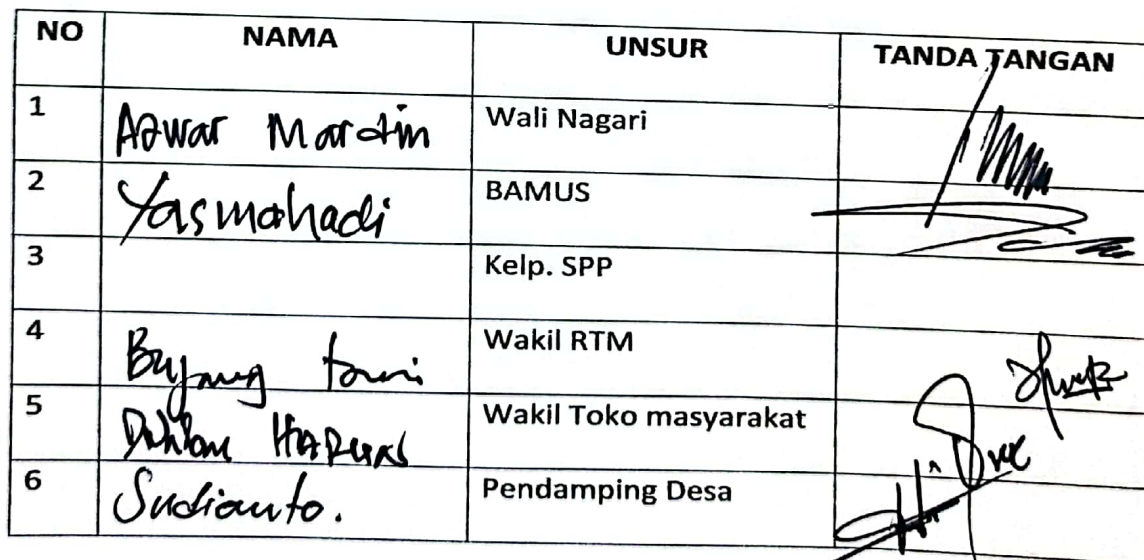 NO NAMA UNSUR TANDA TANGAN
1 Azwar Mardin Wali Nagari
2 Yasmahadi BAMUS
3 Kelp. SPP
4 Bujang Wakil RTM
5 Dahlan Harun Wakil Toko masyarakat
6 Sudianto. Pendamping Desa